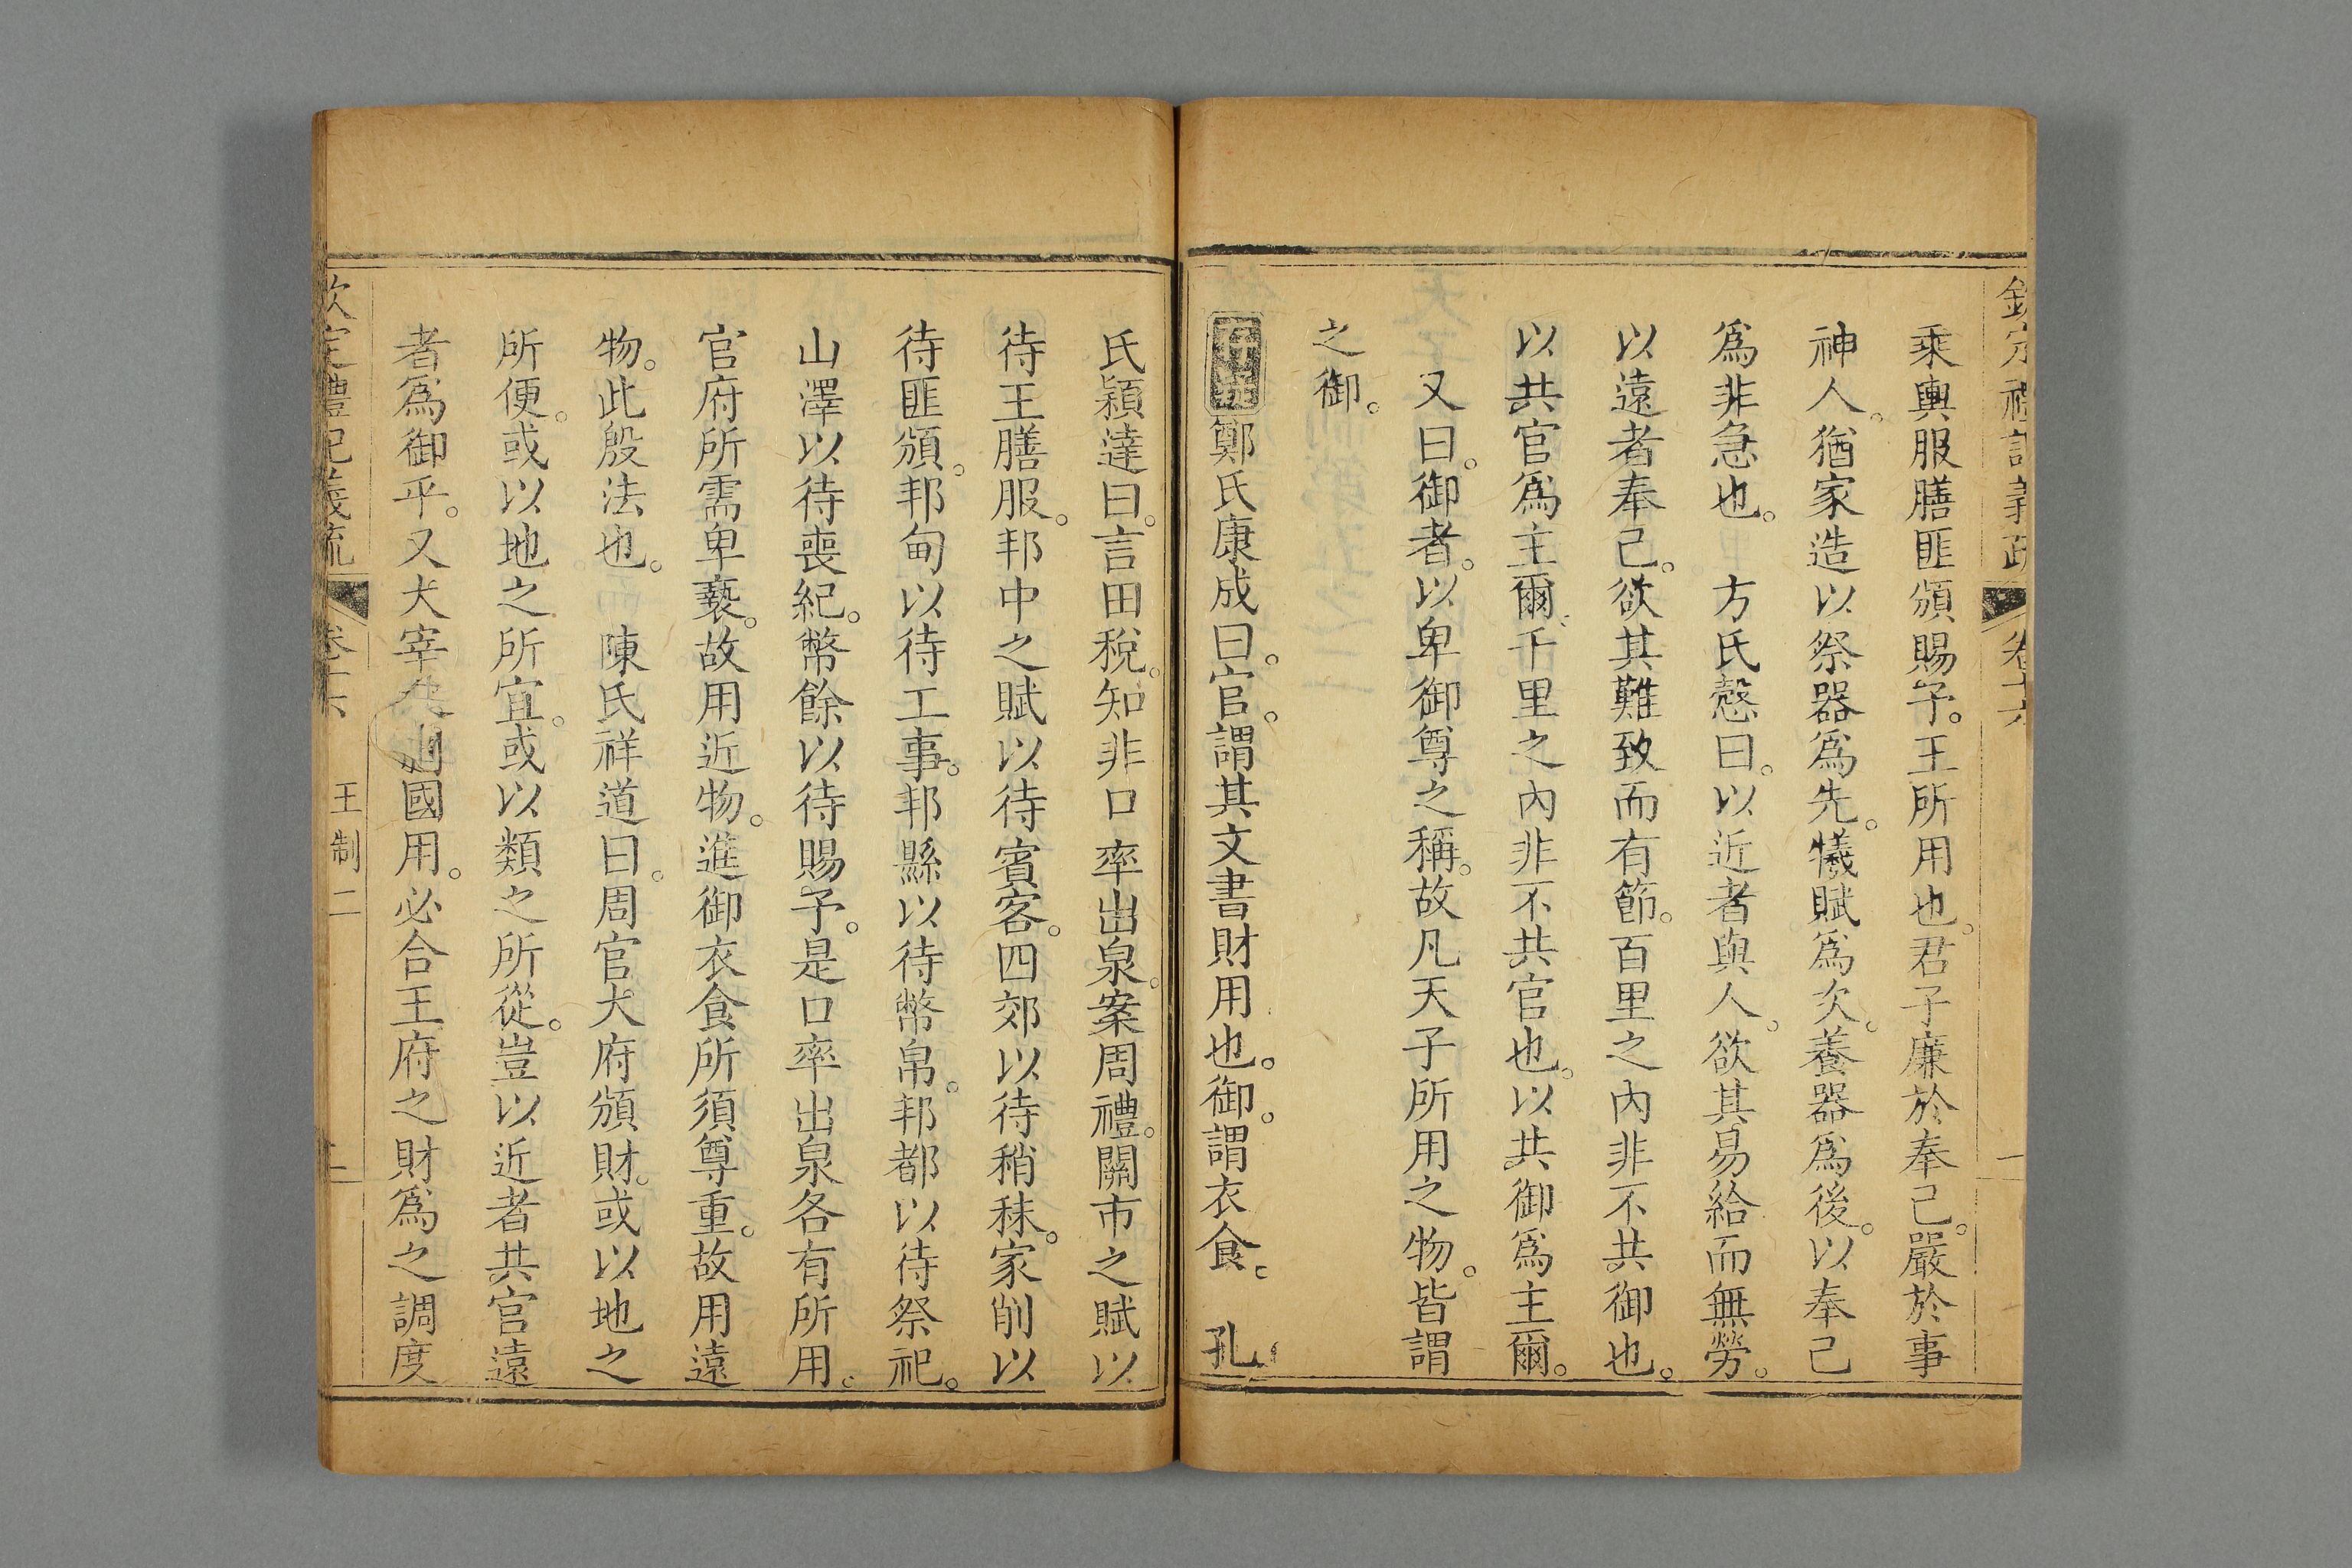 乘輿服膳匪頒賜予。王所用也。君子廉於奉己。嚴於事
神人。猶家造以祭器爲先。犧賦爲次。養器爲後。以奉己
爲非急也。方氏慤曰。以近者與人。欲其易給而無勞。
以遠者奉己。欲其難致而有節。百里之內非不共御也。
以共官爲主爾。千里之內非不共官也。以共御爲主爾。
又曰。御者。以卑御尊之稱。故凡天子所用之物。皆謂
之御。
鄭氏康成曰。官。謂其文書財用也。御。謂衣食。孔
氏穎達曰。言田稅。知非口率出泉。案周禮。關市之賦以
待王膳服。邦中之賦以待賓客。四郊以待稍秣。家削以
待匪頒。邦甸以待工事。邦縣以待幣帛。邦都以待祭祀。
山澤以待喪紀。幣餘以待賜予。是口率出泉各有所用。
官府所需卑褻。故用近物。進御衣食所須尊重。故用遠
物。此殷法也。陳氏祥道曰。周官大府頒財。或以地之
所便。或以地之所宜。或以類之所從。豈以近者共官遠
者爲御乎。又大宰國用。必合王府之財爲之調度
欽定禮記義疏 卷十六 王制二